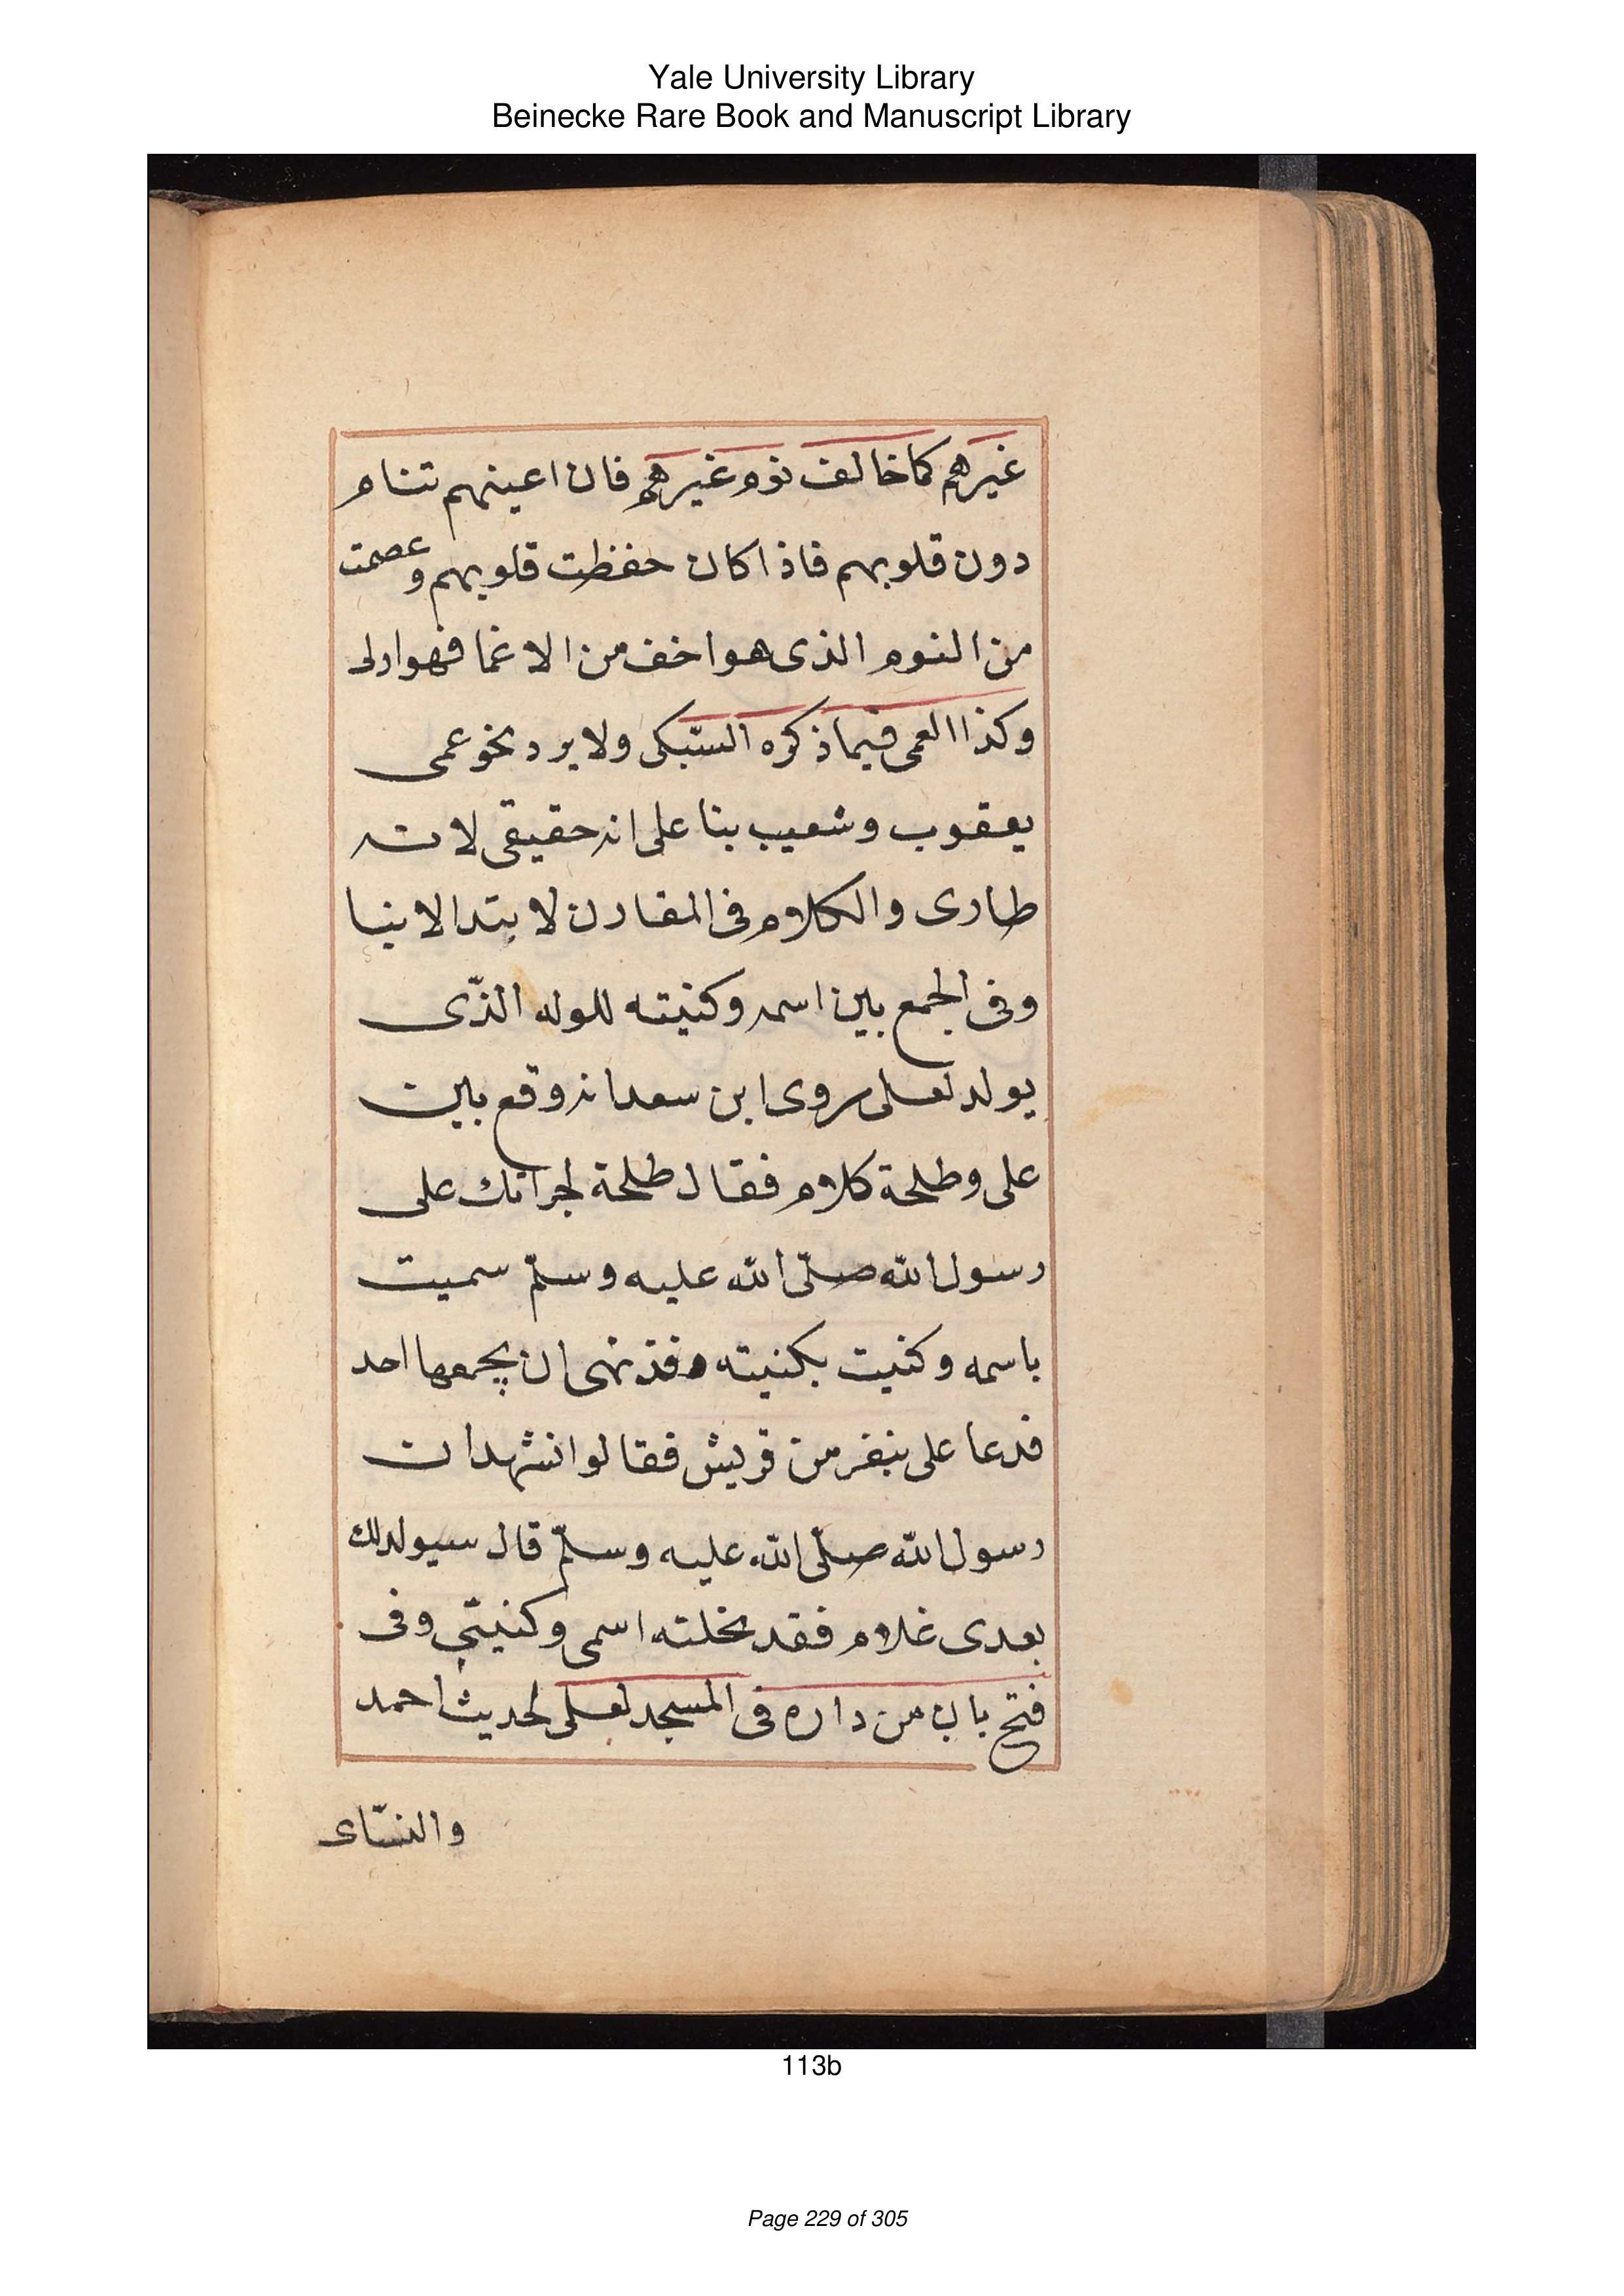 Yale University Library
Beinecke Rare Book and Manuscript Library
غيرهم كما خالف نوم غيرهم فان اعينهم تنام
دون قلوبهم فاذا كان حفظت قلوبهم وعصمت
من النوم الذى هو اخف من الاغما فهو اولى
وكذا العمى فيما ذكره السّبكى ولا يرد نحو عمى
يعقوب وشعيب بنا على انه حقيقى لانه
طارى والكلام فى المقارن لابتدا الانبيا
وفى الجمع بين اسمه وكنيته للولد الذّى
يولد لعلى روى ابن سعد انه وقع بين
على وطلحة كلام فقال طلحة لجراتك على
رسول الله صلّى الله عليه وسلّم سميت
باسمه وكنيت بكنيته وقد نهى ان يجمعها احد
فدعا على بنفر من قريش فقالوا نشهد ان
رسول الله صلّى الله عليه وسلّم قال سيولد لك
بعدى غلام فقد نحلته اسمى وكنيتى وفى
فتح باب من داره فى المسجد لعلى لحديث احمد
والنسّاى
113b
Page 229 of 305